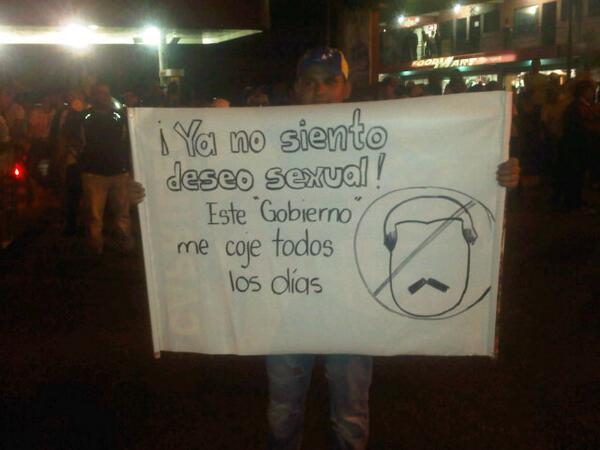 ¡Ya no siento
deseo sexual!
Este "Gobierno"
me coje todos
los días